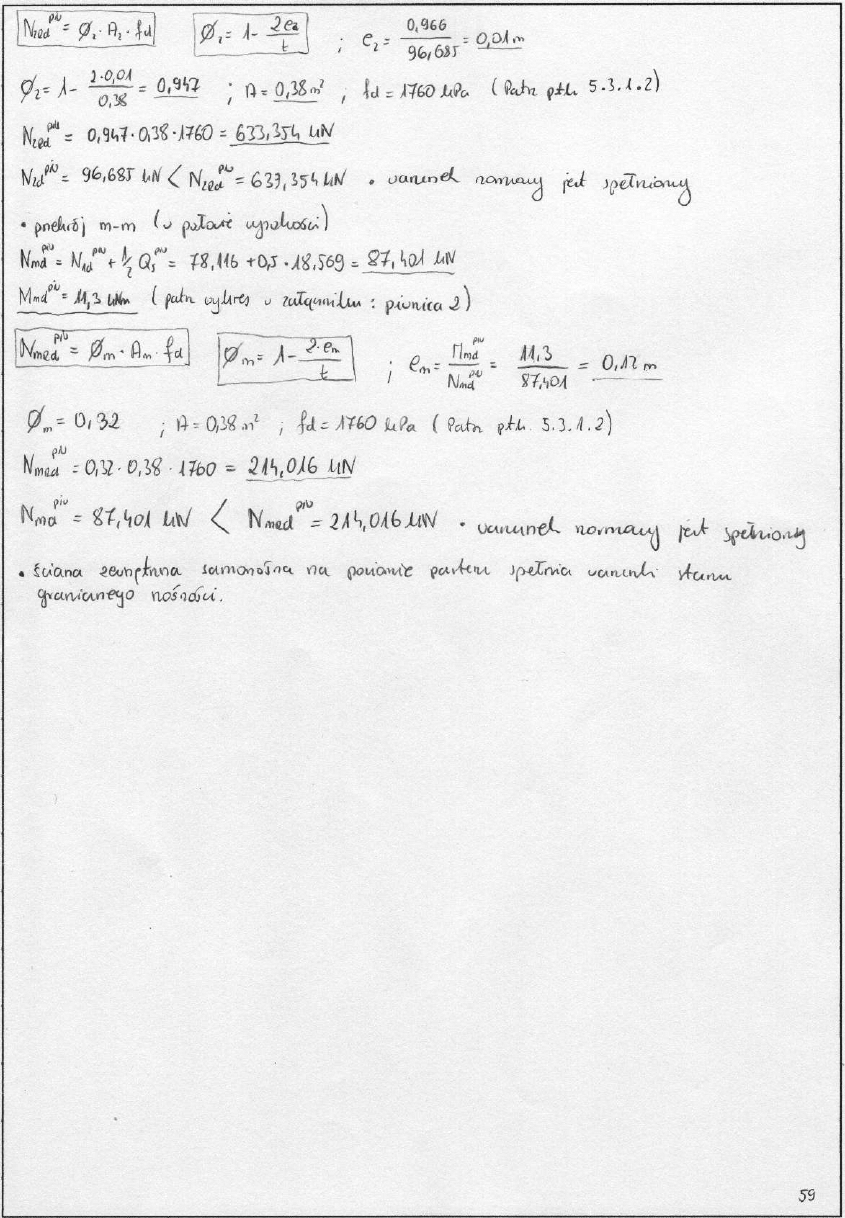 N₂ed^piw = Ø₂ · A₂ · fd   Ø₂ = 1 - 2e₂/t ; e₂ = 0,966/96,685 = 0,01 m
Ø₂ = 1 - 2·0,01/0,38 = 0,947 ; A = 0,38 m² , fd = 1760 kPa (Patrz pkt. 5.3.1.2)
N₂ed^piw = 0,947 · 0,38 · 1760 = 633,354 kN
N₂d^piw = 96,685 kN < N₂ed^piw = 633,354 kN • warunek normowy jest spełniony
• przekrój m-m (w połowie wysokości)
Nmd^piw = N₁d^piw + 1/2 Qs^piw = 78,116 + 0,5 · 18,569 = 87,401 kN
Mmd^piw = 11,3 kNm (patrz wykres w załączniku: piwnica 2)
Nmed^piw = Øm · Am · fd   Øm = 1 - 2·em/t ; em = Mmd^piw/Nmd^piw = 11,3/87,401 = 0,12 m
Øm = 0,32 ; A = 0,38 m² ; fd = 1760 kPa (Patrz pkt. 5.3.1.2)
Nmed^piw = 0,32 · 0,38 · 1760 = 214,016 kN
Nmd^piw = 87,401 kN < Nmed^piw = 214,016 kN • warunek normowy jest spełniony
• ściana zewnętrzna samonośna na poziomie parteru spełnia warunki stanu
granicznego nośności.
59